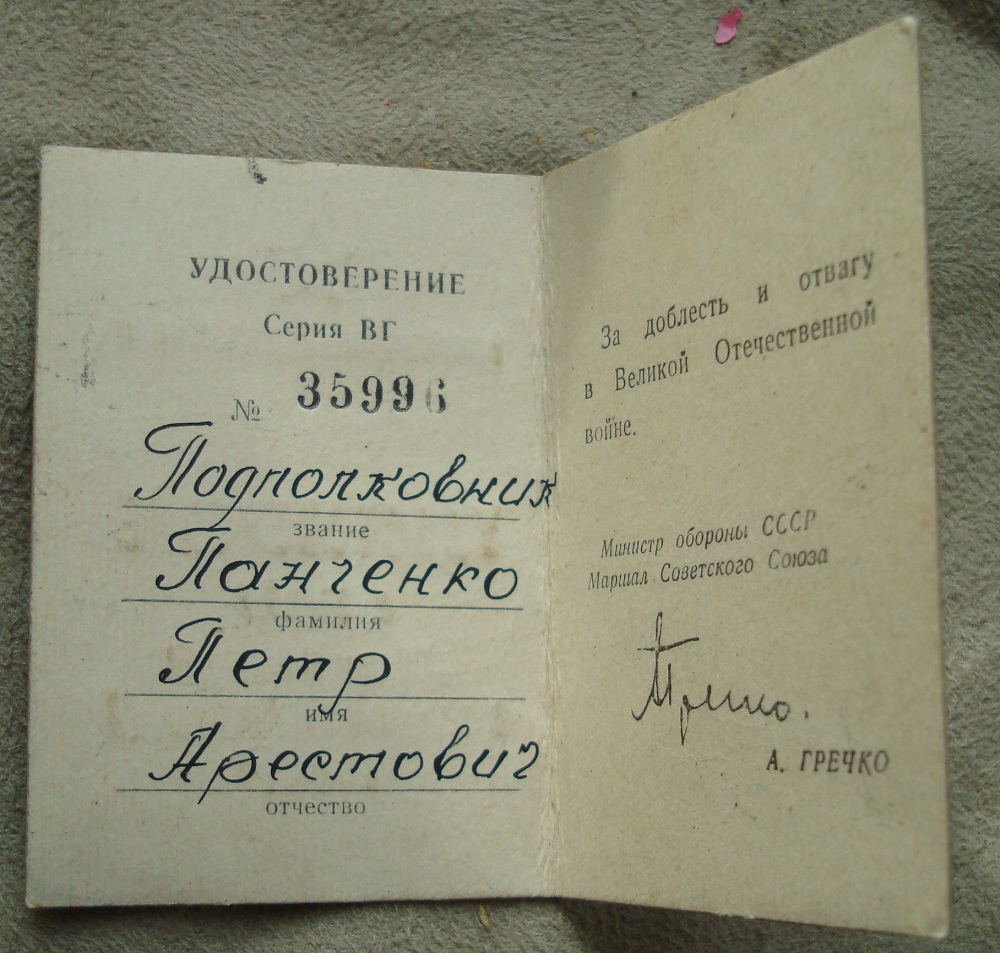 УДОСТОВЕРЕНИЕ
Серия ВГ
№ 35996
Подполковник
звание
Панченко
фамилия
Петр
имя
Арестович
отчество
За доблесть и отвагу
в Великой Отечественной
войне.
Министр обороны СССР
Маршал Советского Союза
А. ГРЕЧКО